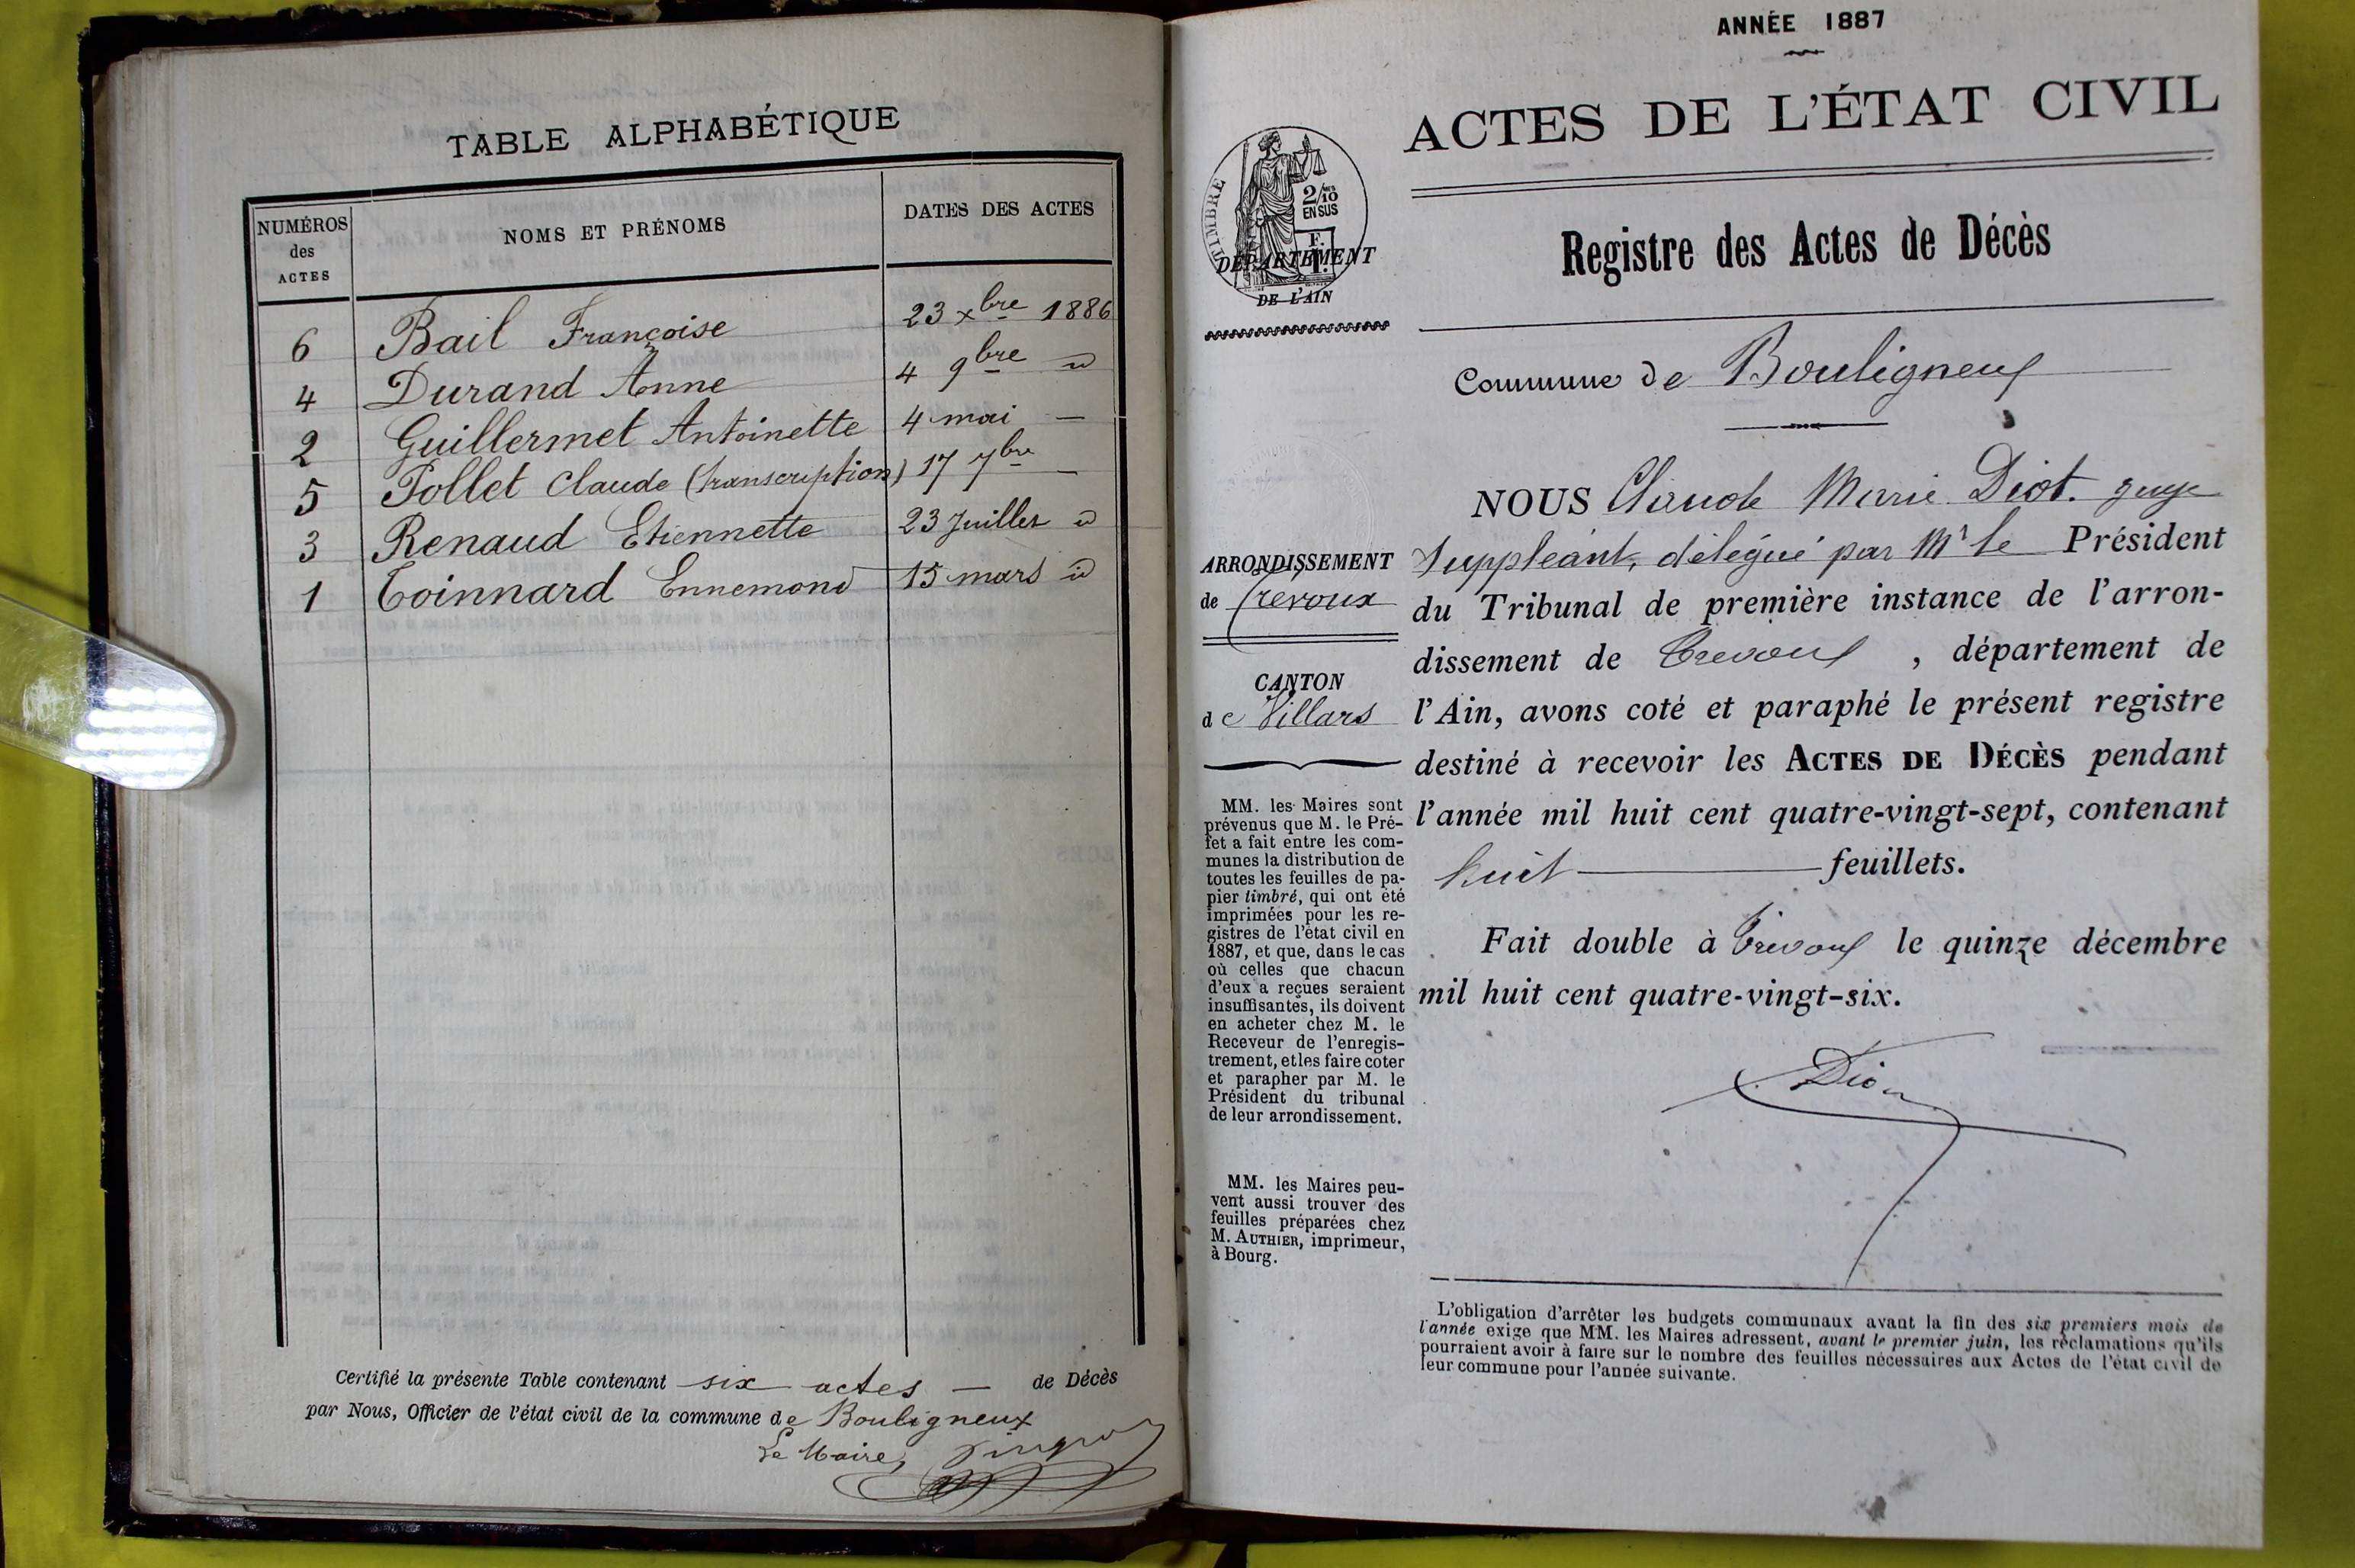 TABLE ALPHABÉTIQUE
NUMÉROS
des
ACTES
NOMS ET PRÉNOMS
DATES DES ACTES
6 Bail Françoise 23 xbre 1886
4 Durand Anne 4 9bre id
2 Guillermet Antoinette 4 mai —
5 Pollet Claude (transcription) 17 7bre —
3 Renaud Etiennette 23 Juillet id
1 Toinnard Ennemond 15 mars id
Certifié la présente Table contenant six actes — de Décès
par Nous, Officier de l'état civil de la commune de Bouligneux
Le Maire,
ANNÉE 1887
ACTES DE L'ÉTAT CIVIL
TIMBRE
2/10
EN SUS
DÉPARTEMENT
DE L'AIN
Registre des Actes de Décès
Commune de Bouligneux
ARRONDISSEMENT
de Trevoux
CANTON
de Villars
MM. les Maires sont
prévenus que M. le Pré-
fet a fait entre les com-
munes la distribution de
toutes les feuilles de pa-
pier timbré, qui ont été
imprimées pour les re-
gistres de l'état civil en
1887, et que, dans le cas
où celles que chacun
d'eux a reçues seraient
insuffisantes, ils doivent
en acheter chez M. le
Receveur de l'enregis-
trement, et les faire coter
et parapher par M. le
Président du tribunal
de leur arrondissement.
MM. les Maires peu-
vent aussi trouver des
feuilles préparées chez
M. AUTHIER, imprimeur,
à Bourg.
NOUS Claude Marie Diot. juge
Suppléant, délégué par Mr le Président
du Tribunal de première instance de l'arron-
dissement de Trevoux, département de
l'Ain, avons coté et paraphé le présent registre
destiné à recevoir les ACTES DE DÉCÈS pendant
l'année mil huit cent quatre-vingt-sept, contenant
huit — feuillets.
Fait double à Trevoux le quinze décembre
mil huit cent quatre-vingt-six.
Diot
L'obligation d'arrêter les budgets communaux avant la fin des six premiers mois de
l'année exige que MM. les Maires adressent, avant le premier juin, les réclamations qu'ils
pourraient avoir à faire sur le nombre des feuilles nécessaires aux Actes de l'état civil de
leur commune pour l'année suivante.